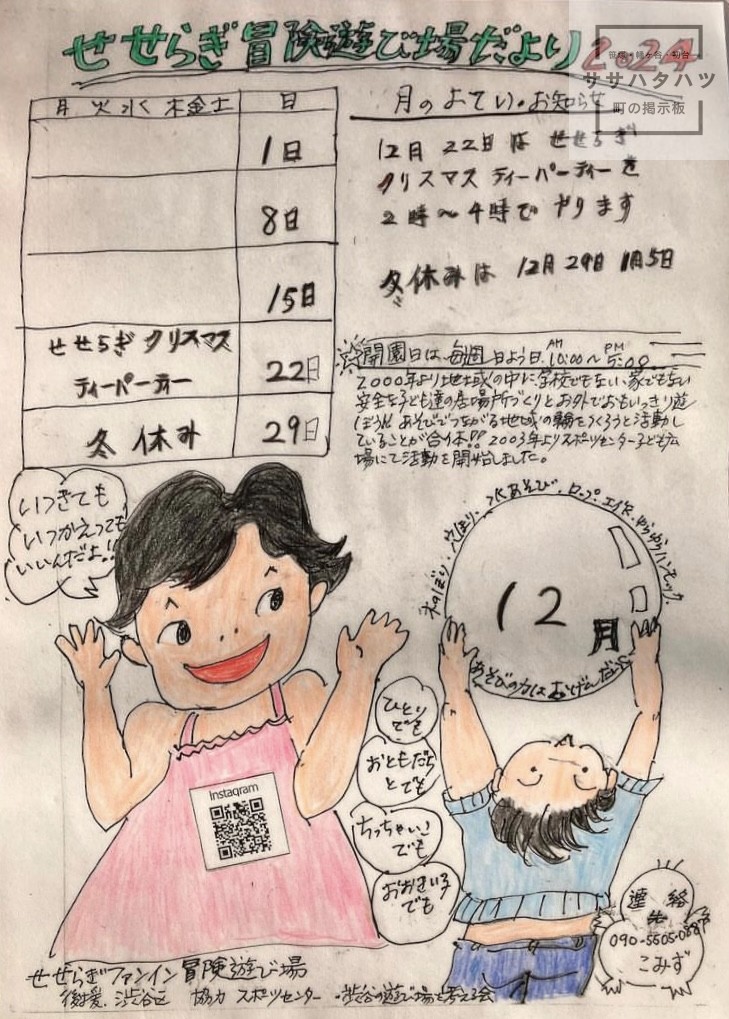 せせらぎ冒険遊び場だより 2024
笹塚・幡ヶ谷・初台
ササハタハツ
町の掲示板
月 火 水 木 金 土 日
1日
8日
15日
せせらぎ クリスマス
ティーパーティー
22日
冬休み
29日
月のよてい。お知らせ
12月 22日は せせらぎ
クリスマス ティーパーティーを
2時〜4時で やります
冬休みは 12月29日 1月5日
☆開園日は、毎週日よう日、AM10:00〜PM5:00
2000年より地域の中に学校でもない、家でもない
安全な子ども達の居場所づくりとお外でおもいっきり遊
ぼう!! あそびでつながる地域の輪をつくろうと活動し
ていることが合休!! 2003年よりスポーツセンター子ども広
場にて活動を開始しました。
いつきても
いつかえっても
いいんだよ!!
木のぼり、穴ほり、水あそび、ロープ、エイセ、ゆらゆらハンモック、
12月
あそびの力はおとげんだいら
ひとり
でも
おともだち
とでも
ちっちゃいこ
でも
おおきい子
でも
Instagram
連絡
先
090-5505-0887
こみず
せせらぎファンイン冒険遊び場
後援、渋谷区 協力 スポーツセンター・渋谷の遊び場を考える会